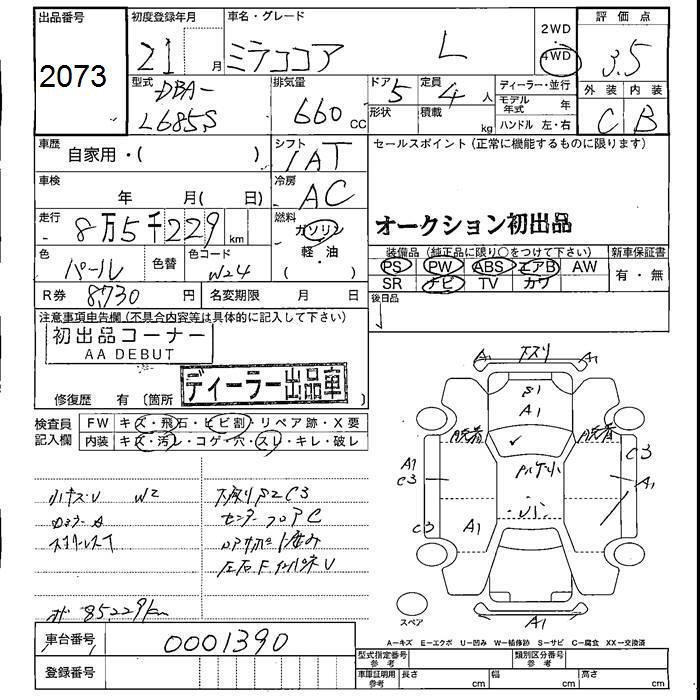 出品番号 初度登録年月 車名・グレード 2WD 評価点
2073 21 月 ミラココア L 4WD 3.5
型式 排気量 ドア 定員 ディーラー・並行 外装 内装
DBA- 660 CC 5 4 人 モデル年式 年 C B
L685S 形状 積載 kg ハンドル 左・右
車歴 シフト セールスポイント(正常に機能するものに限ります)
自家用・( ) IAT
車検 冷房
年 月( 日) AC
走行 燃料 オークション初出品
8万5千229 km ガソリン
軽・油
( )
色 パール 色替 色コード W24
装備品(純正品に限り○をつけて下さい) 新車保証書
PS PW ABS エアB AW 有・無
SR ナビ TV カワ
R券 8,730 円 名変期限 月 日 後日品
注意事項申告欄(不具合内容等は具体的に記入して下さい)
初出品コーナー
AA DEBUT
ディーラー出品車
修復歴 有 〔箇所 〕
検査員 FW キズ・飛石・ヒビ割・リペア跡・X要
記入欄 内装 キズ・汚レ・コゲ・穴・スレ・キレ・破レ
小キズ・U W2 下廻りS2C3
センターフロアC
85229km
A1 下廻り A1
S1
A1
脱着 脱着
A1 C3
C3 A1
C3 A1
A1
スペア
A-キズ E-エクボ U-凹み W-補修跡 S-サビ C-腐食 XX-交換済
車台番号 0001390
登録番号
型式指定番号 参考 類別区分番号 参考
車庫証明用 参考 長さ cm 幅 cm 高さ cm